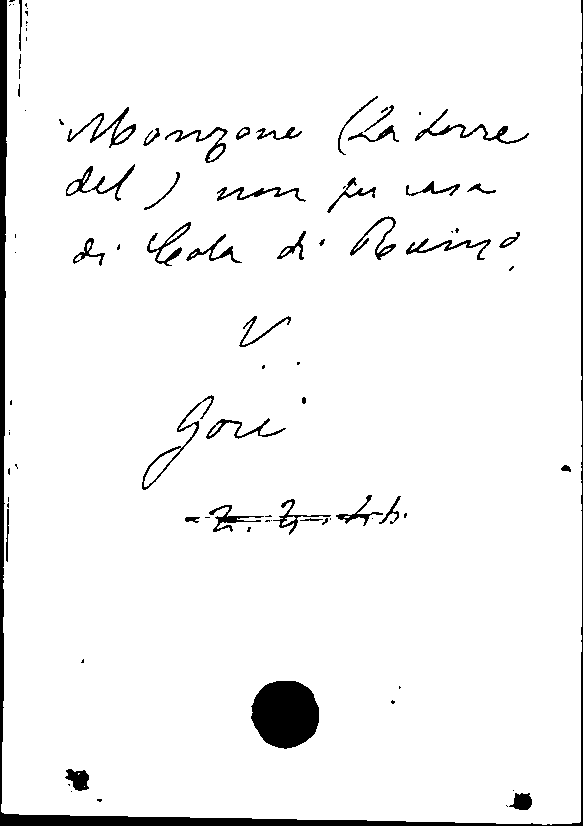 Monzone (La torre
del) non fu casa
di Cola di Rienzo
V.
Gori